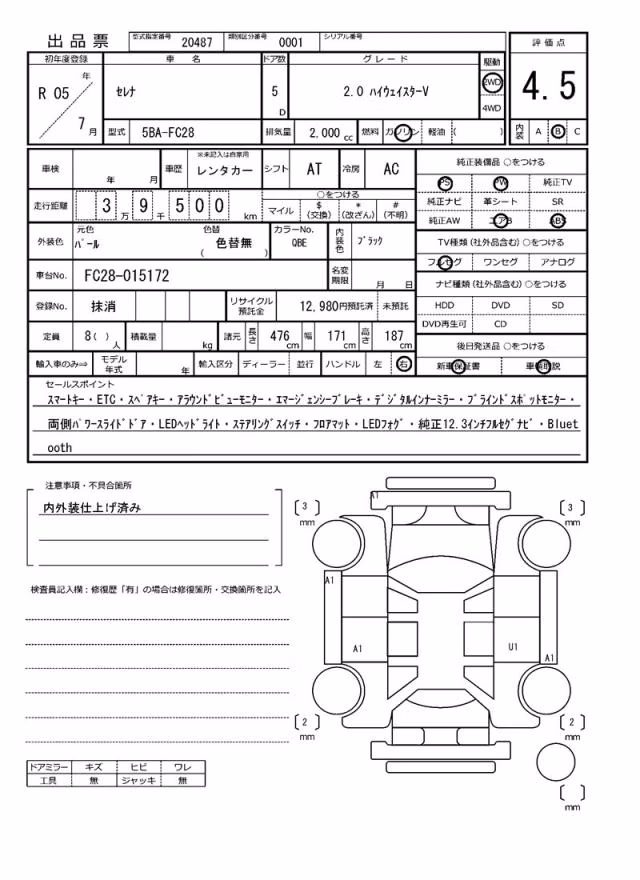 出品票
型式指定番号 20487 類別区分番号 0001 シリアル番号
評価点
4.5
内装 A B C
初年度登録 車名 ドア数 グレード 駆動
R 05 年 7 月
セレナ
5 D
2.0 ハイウェイスターV
2WD
4WD
型式 5BA-FC28 排気量 2,000 cc 燃料 ガソリン 軽油 ( )
車検 年 月 車歴 ※未記入は自家用 レンタカー シフト AT 冷房 AC
走行距離 3 万 9 千 5 0 0 km
○をつける
マイル $ (交換) * (改ざん) # (不明)
外装色 元色 パール 色替 色替無 ( ) カラーNo. QBE 内装色 ブラック
車台No. FC28-015172 名変期限 月 日
登録No. 抹消 リサイクル預託金 12,980円預託済 未預託
定員 8( ) 人 積載量 kg 諸元 長さ 476 cm 幅 171 cm 高さ 187 cm
輸入車のみ⇒ モデル年式 年 輸入区分 ディーラー 並行 ハンドル 左 右
純正装備品 ○をつける
PS PW 純正TV
純正ナビ 革シート SR
純正AW エアB ABS
TV種類(社外品含む)○をつける
フルセグ ワンセグ アナログ
ナビ種類(社外品含む)○をつける
HDD DVD SD
DVD再生可 CD
後日発送品 ○をつける
新車保証書 車輌取説
セールスポイント
スマートキー・ETC・スペアキー・アラウンドビューモニター・エマージェンシーブレーキ・デジタルインナーミラー・ブラインドスポットモニター・
両側パワースライドドア・LEDヘッドライト・ステアリングスイッチ・フロアマット・LEDフォグ・純正12.3インチフルセグナビ・Bluet
ooth
注意事項・不具合箇所
内外装仕上げ済み
検査員記入欄:修復歴「有」の場合は修復箇所・交換箇所を記入
ドアミラー キズ ヒビ ワレ
工具 無 ジャッキ 無
A1
[ 3 ] mm
[ 3 ] mm
A1
A1
U1
A1
[ 2 ] mm
[ 2 ] mm
[ ] mm